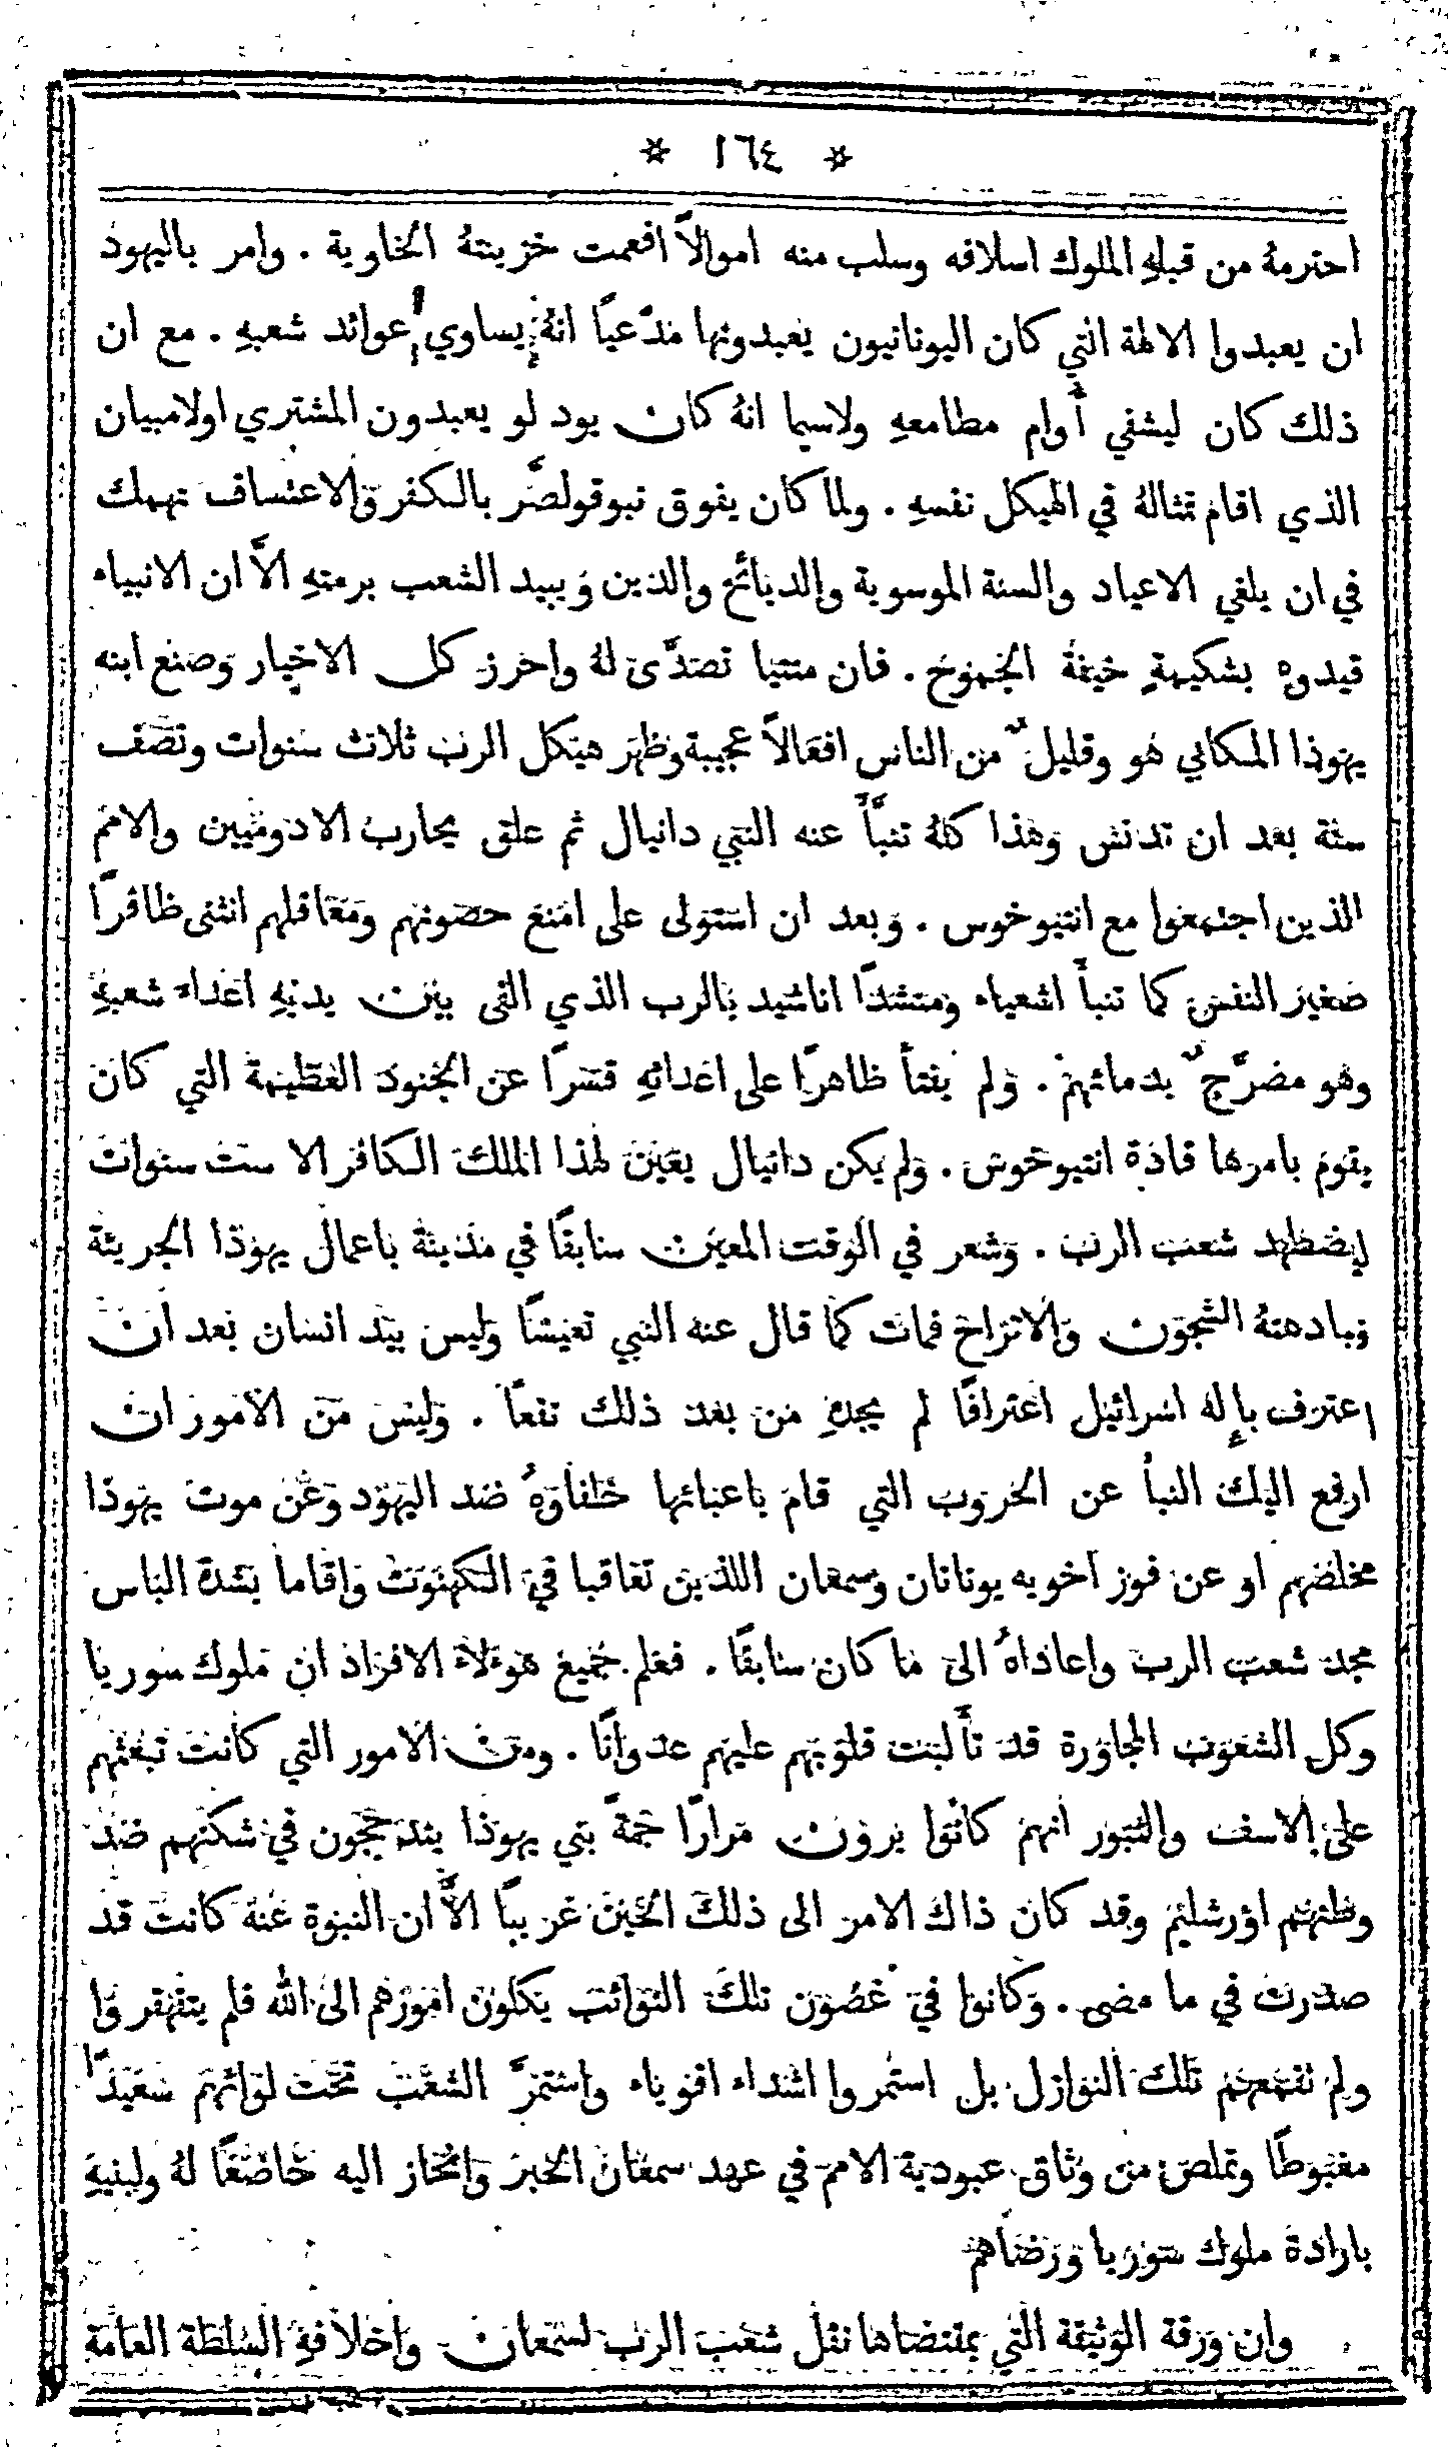 * ١٦٤ *
احترمهُ من قبلهِ الملوك اسلافه وسلب منه اموالاً افعمت خزينتهُ الخاوية . وامر باليهود
ان يعبدوا الالهة التي كان اليونانيون يعبدونها مدّعياً انهُ يساوي عوائد شعبهِ . مع ان
ذلك كان ليشفي أُوام مطامعهِ ولاسيما انهُ كان يود لو يعبدون المشتري اولامبيان
الذي اقام تمثالهُ في الهيكل نفسهِ . ولما كان يفوق نبوقولصَّر بالكفر والاعتساف تهمك
في ان يلغي الاعياد والسنة الموسوية والدبائح والدين ويبيد الشعب برمتهِ الاَّ ان الانبياء
قيدوه بشكيمةٍ خيفة الجموح . فان متتيا تصدَّى لهُ واحرز كل الاخيار وصنع ابنه
يهوذا المكابي هو وقليلٌ من الناس افعالاً عجيبة وظهر هيكل الرب ثلاث سنوات ونصف
سنة بعد ان تدنس وهذا كلهُ تنبَّأَ عنه النبي دانيال ثم علق يحارب الادوميين والامم
الذين اجتمعوا مع انتيوخوس . وبعد ان استولى على امنع حصونهم ومعاقلهم انثنى ظافراً
صغير النفس كما تنبأَ اشعياء ومنشداً اناشيد بالرب الذي القى بين يديهِ اعداء شعبهِ
وهو مضرَّجٌ بدمائهم . ولم يفتأ ظاهراً على اعدائهِ قسراً عن الجنود العظيمة التي كان
يقوم بامرها قادة انتيوخوس . ولم يكن دانيال يعين لهذا الملك الكافر الا ست سنوات
ليضطهد شعب الرب . وشعر في الوقت المعين سابقاً في مدينة باعمال يهوذا الجريئة
وبادهتهُ الشجون والاتراح فمات كما قال عنه النبي تعيساً وليس بيد انسان بعد ان
اعترف بإِله اسرائيل اعترافاً لم يجدهِ من بعد ذلك نفعاً . وليس من الامور ان
ارفع اليك النبأ عن الحروب التي قام باعبائها خلفاؤهُ ضد اليهود وعن موت يهوذا
مخلصهم او عن فوز اخويه يوناتان وسمعان اللذين تعاقبا في الكهنوت واقاما بشدة الباس
مجد شعب الرب واعاداهُ الى ما كان سابقاً . فعلم جميع هؤلاء الافراد ان ملوك سوريا
وكل الشعوب المجاورة قد تأَلبت قلوبهم عليهم عدواناً . ومن الامور التي كانت تبعثهم
على الاسف والثبور انهم كانوا يرون مراراً جمةً بني يهوذا يتدججون في شكتهم ضد
وطنهم اورشليم وقد كان ذاك الامر الى ذلك الحين غريباً الاَّ ان النبوة عنهُ كانت قد
صدرت في ما مضى . وكانوا في غضون تلك النوائب يكلون امورهم الى الله فلم يتقهقروا
ولم تقمعهم تلك النوازل بل استمروا اشداء اقوياء واستمرَّ الشعب تحت لوائهم سعيداً
مغبوطاً وتملص من وثاق عبودية الامم في عهد سمعان الحبر وانحاز اليه خاضعاً لهُ ولبنيهِ
بارادة ملوك سوريا ورضاهم
وان ورقة الوثيقة التي بمقتضاها نقل شعب الرب لسمعان واخلافهِ السلطة العامة